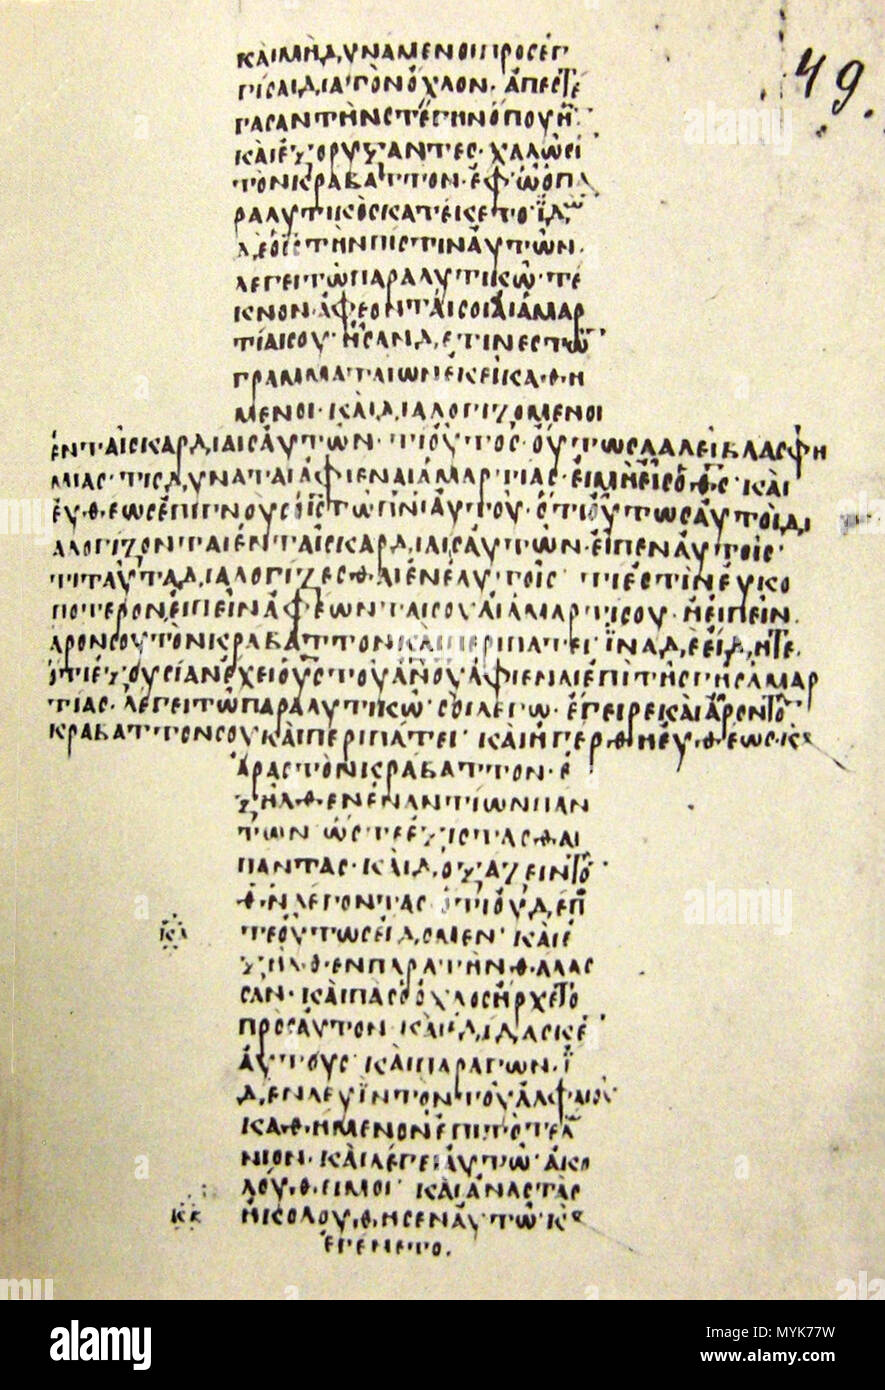 49.
ΚΑῚΜῊΔΥΝΆΜΕΝΟΙΠΡΟΣΕΓ
ΓΊΣΑΙΔΙΑΤῸΝὌΧΛΟΝ· ἈΠΕΣΤΈ
ΓΑΣΑΝΤῊΝΣΤΈΓΗΝὍΠΟΥῊ
ΚΑῚἘΞΟΡΎΞΑΝΤΕΣ· ΧΑΛῶΣΙ
ΤῸΝΚΡΆΒΑΤΤΟΝ· ἘΦ᾽ὯὉΠΑ
ΡΑΛΥΤΙΚῸΣΚΑΤΈΚΕΤΟ· ἸΔῶ
ΔΕὉΙΣΤῊΝΠΊΣΤΙΝἈΥΤῶΝ·
ΛΕΓΕΙΤῶΠΑΡΑΛΥΤΙΚῶ· ΤΕ
ΚΝΟΝ· ἈΦΕΟΝΤΆΙΣΟΙἉΙἉΜΑΡ
ΤΊΑΙΣΟΥ· ἮΣΑΝΔΕΤΙΝΕΣΤῶ
ΓΡΑΜΜΑΤΑΙΩΝἘΚΕΙΚΑΘΗ
ΜΕΝΟΙ· ΚΑῚΔΙΑΛΟΓΙΖΟΜΕΝΟΙ
ἘΝΤΑΙΣΚΑΡΔΙΑΙΣἈΥΤῶΝ· ΤΙΟΥΤΟΣ· ΟΥΤΩΣΛΑΛΕΙΒΛΑΣΦΗ
ΜΙΑΣ· ΤΙΣΔΥΝΑΤΑΙἈΦΙΕΝΑΙἉΜΑΡΤΙΑΣ· ἘΙΜῊἘΙΣὉΘΣ· ΚΑΙ
ἘΥΘΕΩΣἘΠΙΓΝΟΥΣὉΙΣΤῶΠΝΙἈΥΤΟΥ· ὍΤΙΟΥΤΩΣἈΥΤΟΙΔΙ
ΑΛΟΓΙΖΟΝΤΑΙἘΝΤΑΙΣΚΑΡΔΙΑΙΣἈΥΤῶΝ· ἘΙΠΕΝἈΥΤΟΙΣ·
ΤΙΤΑΥΤΑΔΙΑΛΟΓΙΖΕΣΘΑΙἘΝἘΑΥΤΟΙΣ· ΤΙἘΣΤῚΝἘΥΚΟ
ΠΟΤΕΡΟΝἘΙΠΕΙΝἈΦΕΩΝΤΑΙΣΟΥἉΙἉΜΑΡΤΙΣΟΥ· ἨἘΙΠΕΙΝ·
ἈΡΟΝΣΟΥΤῸΝΚΡΑΒΑΤΤΟΝΚΑΙΠΕΡΙΠΑΤΕΙ· ἹΝΑΔΕἘΙΔΗΤΕ·
ὍΤΙἘΞΟΥΣΙΑΝἜΧΕΙὉΥΣΤΟΥἈΝΟΥἈΦΙΕΝΑΙἘΠῚΤΗΣΓΗΣἉΜΑΡ
ΤΙΑΣ· ΛΕΓΕΙΤῶΠΑΡΑΛΥΤΙΚῶ· ΣΟΙΛΕΓΩ· ἘΓΕΙΡΕΚΑΙἈΡΟΝΤΟ
ΚΡΑΒΑΤΤΟΝΣΟΥΚΑΙΠΕΡΙΠΑΤΕΙ· ΚΑΙἨΓΕΡΘΗἘΥΘΕΩΣ·Κς
ἈΡΑΣΤῸΝΚΡΑΒΑΤΤΟΝ· Ἐ
ΞΗΛΘΕΝἘΝΑΝΤΙΩΝΠΑΝ
ΤΩΝ ὩΣΤΕἘΞΙΣΤΑΣΘΑΙ
ΠΑΝΤΑΣ· ΚΑῚΔΟΞΑΖΕΙΝΤΟ
ΘΝΛΕΓΟΝΤΑΣ· ὍΤΙΟΥΔΕΠ
ΤΕΟΥΤΩΣΕΙΔΟΜΕΝ· ΚΑΙἘ
ΚΑ
ΞΗΛΘΕΝΠΑΡΑΤῊΝΘΑΛΑΣ
ΣΑΝ· ΚΑΙΠΑΣὉὌΧΛΟΣἨΡΧΕΤΟ
ΠΡΟΣἈΥΤΟΝ· ΚΑΙἘΔΙΔΑΣΚΕ
ἈΥΤΟΥΣ· ΚΑΙΠΑΡΑΓΩΝ· Ἰ
ΔΕΝΛΕΥΪΝΤΟΝΤΟΥἈΛΦΑΙΟΥ
ΚΑΘΗΜΕΝΟΝἘΠΙΤῸΤΕΛ
ΝΙΟΝ· ΚΑΙΛΕΓΕΙἈΥΤῶ· ἈΚΟ
ΛΟΥΘΕΙΜΟΙ· ΚΑΙἈΝΑΣΤΑΣ
ΚΕ
ἨΚΟΛΟΥΘΗΣΕΝἈΥΤῶ·Κς
ἘΓΕΝΕΤΟ.
alamy
Image ID: MYK77W
www.alamy.com